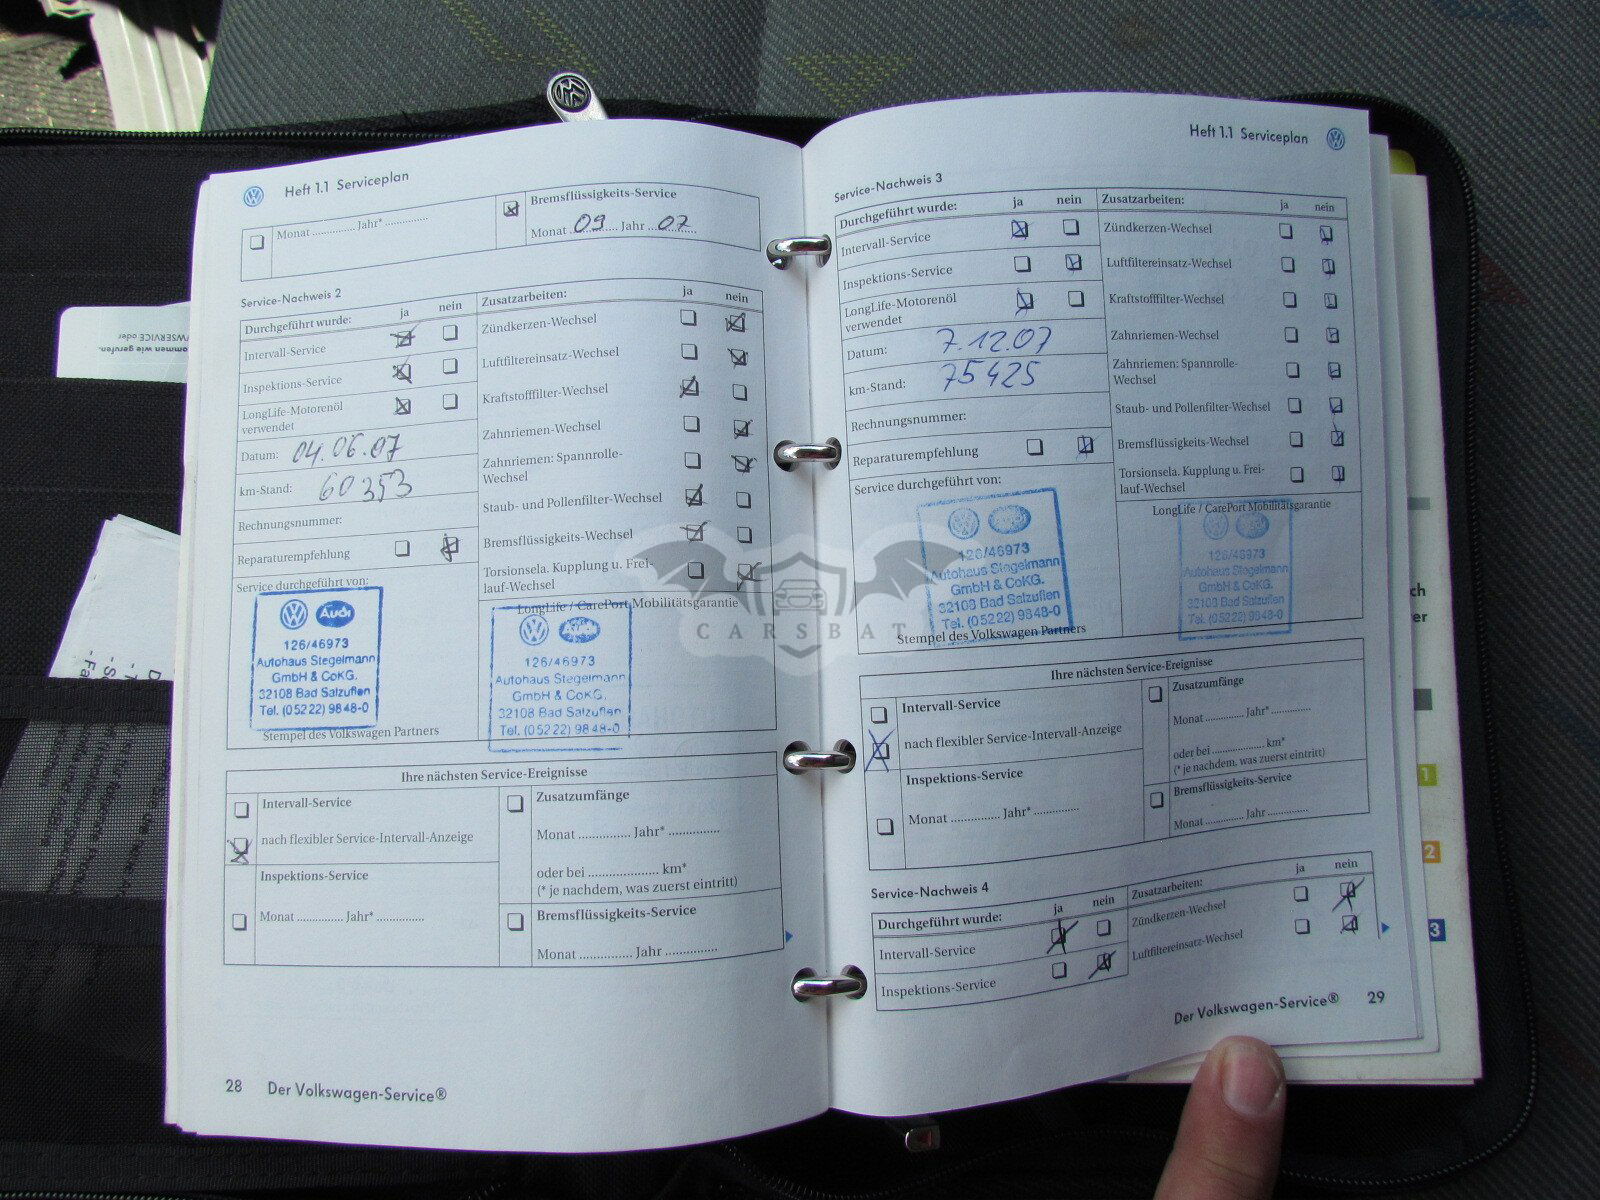 Heft 1.1 Serviceplan
Monat .............. Jahr* ..............
Bremsflüssigkeits-Service
Monat 09 Jahr 07
Service-Nachweis 2
Durchgeführt wurde: ja nein
Intervall-Service
Inspektions-Service
LongLife-Motorenöl
verwendet
Datum: 04.06.07
km-Stand: 60353
Rechnungsnummer:
Reparaturempfehlung
Service durchgeführt von:
Audi
126/46973
Autohaus Stegelmann
GmbH & CoKG.
32108 Bad Salzuflen
Tel. (05222) 9848-0
Stempel des Volkswagen Partners
Zusatzarbeiten: ja nein
Zündkerzen-Wechsel
Luftfiltereinsatz-Wechsel
Kraftstofffilter-Wechsel
Zahnriemen-Wechsel
Zahnriemen: Spannrolle-
Wechsel
Staub- und Pollenfilter-Wechsel
Bremsflüssigkeits-Wechsel
Torsionsela. Kupplung u. Frei-
lauf-Wechsel
LongLife / CarePort Mobilitätsgarantie
126/46973
Autohaus Stegelmann
GmbH & CoKG.
32108 Bad Salzuflen
Tel. (05222) 9848-0
Ihre nächsten Service-Ereignisse
Intervall-Service
nach flexibler Service-Intervall-Anzeige
Inspektions-Service
Monat .............. Jahr* ..............
Zusatzumfänge
Monat .............. Jahr* ..............
oder bei .................... km*
(* je nachdem, was zuerst eintritt)
Bremsflüssigkeits-Service
Monat .............. Jahr ..............
28 Der Volkswagen-Service®
Heft 1.1 Serviceplan
Service-Nachweis 3
Durchgeführt wurde: ja nein
Intervall-Service
Inspektions-Service
LongLife-Motorenöl
verwendet
Datum: 7.12.07
km-Stand: 75425
Rechnungsnummer:
Reparaturempfehlung
Service durchgeführt von:
126/46973
Autohaus Stegelmann
GmbH & CoKG.
32108 Bad Salzuflen
Tel. (05222) 9848-0
Stempel des Volkswagen Partners
Zusatzarbeiten: ja nein
Zündkerzen-Wechsel
Luftfiltereinsatz-Wechsel
Kraftstofffilter-Wechsel
Zahnriemen-Wechsel
Zahnriemen: Spannrolle-
Wechsel
Staub- und Pollenfilter-Wechsel
Bremsflüssigkeits-Wechsel
Torsionsela. Kupplung u. Frei-
lauf-Wechsel
LongLife / CarePort Mobilitätsgarantie
126/46973
Autohaus Stegelmann
GmbH & CoKG.
32108 Bad Salzuflen
Tel. (05222) 9848-0
Ihre nächsten Service-Ereignisse
Intervall-Service
nach flexibler Service-Intervall-Anzeige
Inspektions-Service
Monat .............. Jahr* ..............
Zusatzumfänge
Monat .............. Jahr* ..............
oder bei .................... km*
(* je nachdem, was zuerst eintritt)
Bremsflüssigkeits-Service
Monat .............. Jahr ..............
Service-Nachweis 4
Durchgeführt wurde: ja nein
Intervall-Service
Inspektions-Service
Zusatzarbeiten: ja nein
Zündkerzen-Wechsel
Luftfiltereinsatz-Wechsel
Der Volkswagen-Service® 29
CARSBAT
ch
er
1
2
3